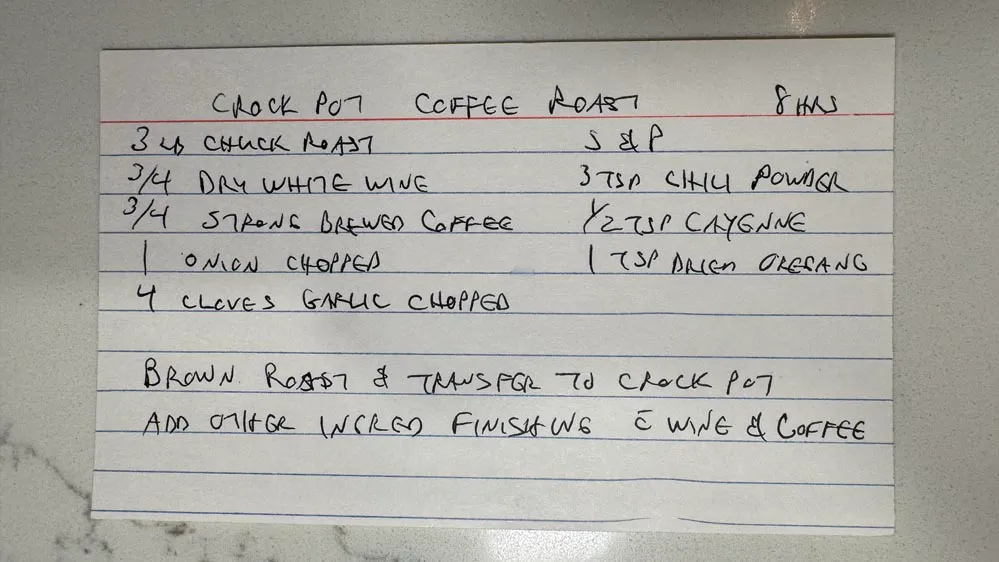 CROCK POT COFFEE ROAST 8 HRS
3 LB CHUCK ROAST S & P
3/4 DRY WHITE WINE 3 TSP CHILI POWDER
3/4 STRONG BREWED COFFEE 1/2 TSP CAYENNE
1 ONION CHOPPED 1 TSP DRIED OREGANO
4 CLOVES GARLIC CHOPPED
BROWN ROAST & TRANSFER TO CROCK POT
ADD OTHER INGRED FINISHING c̄ WINE & COFFEE